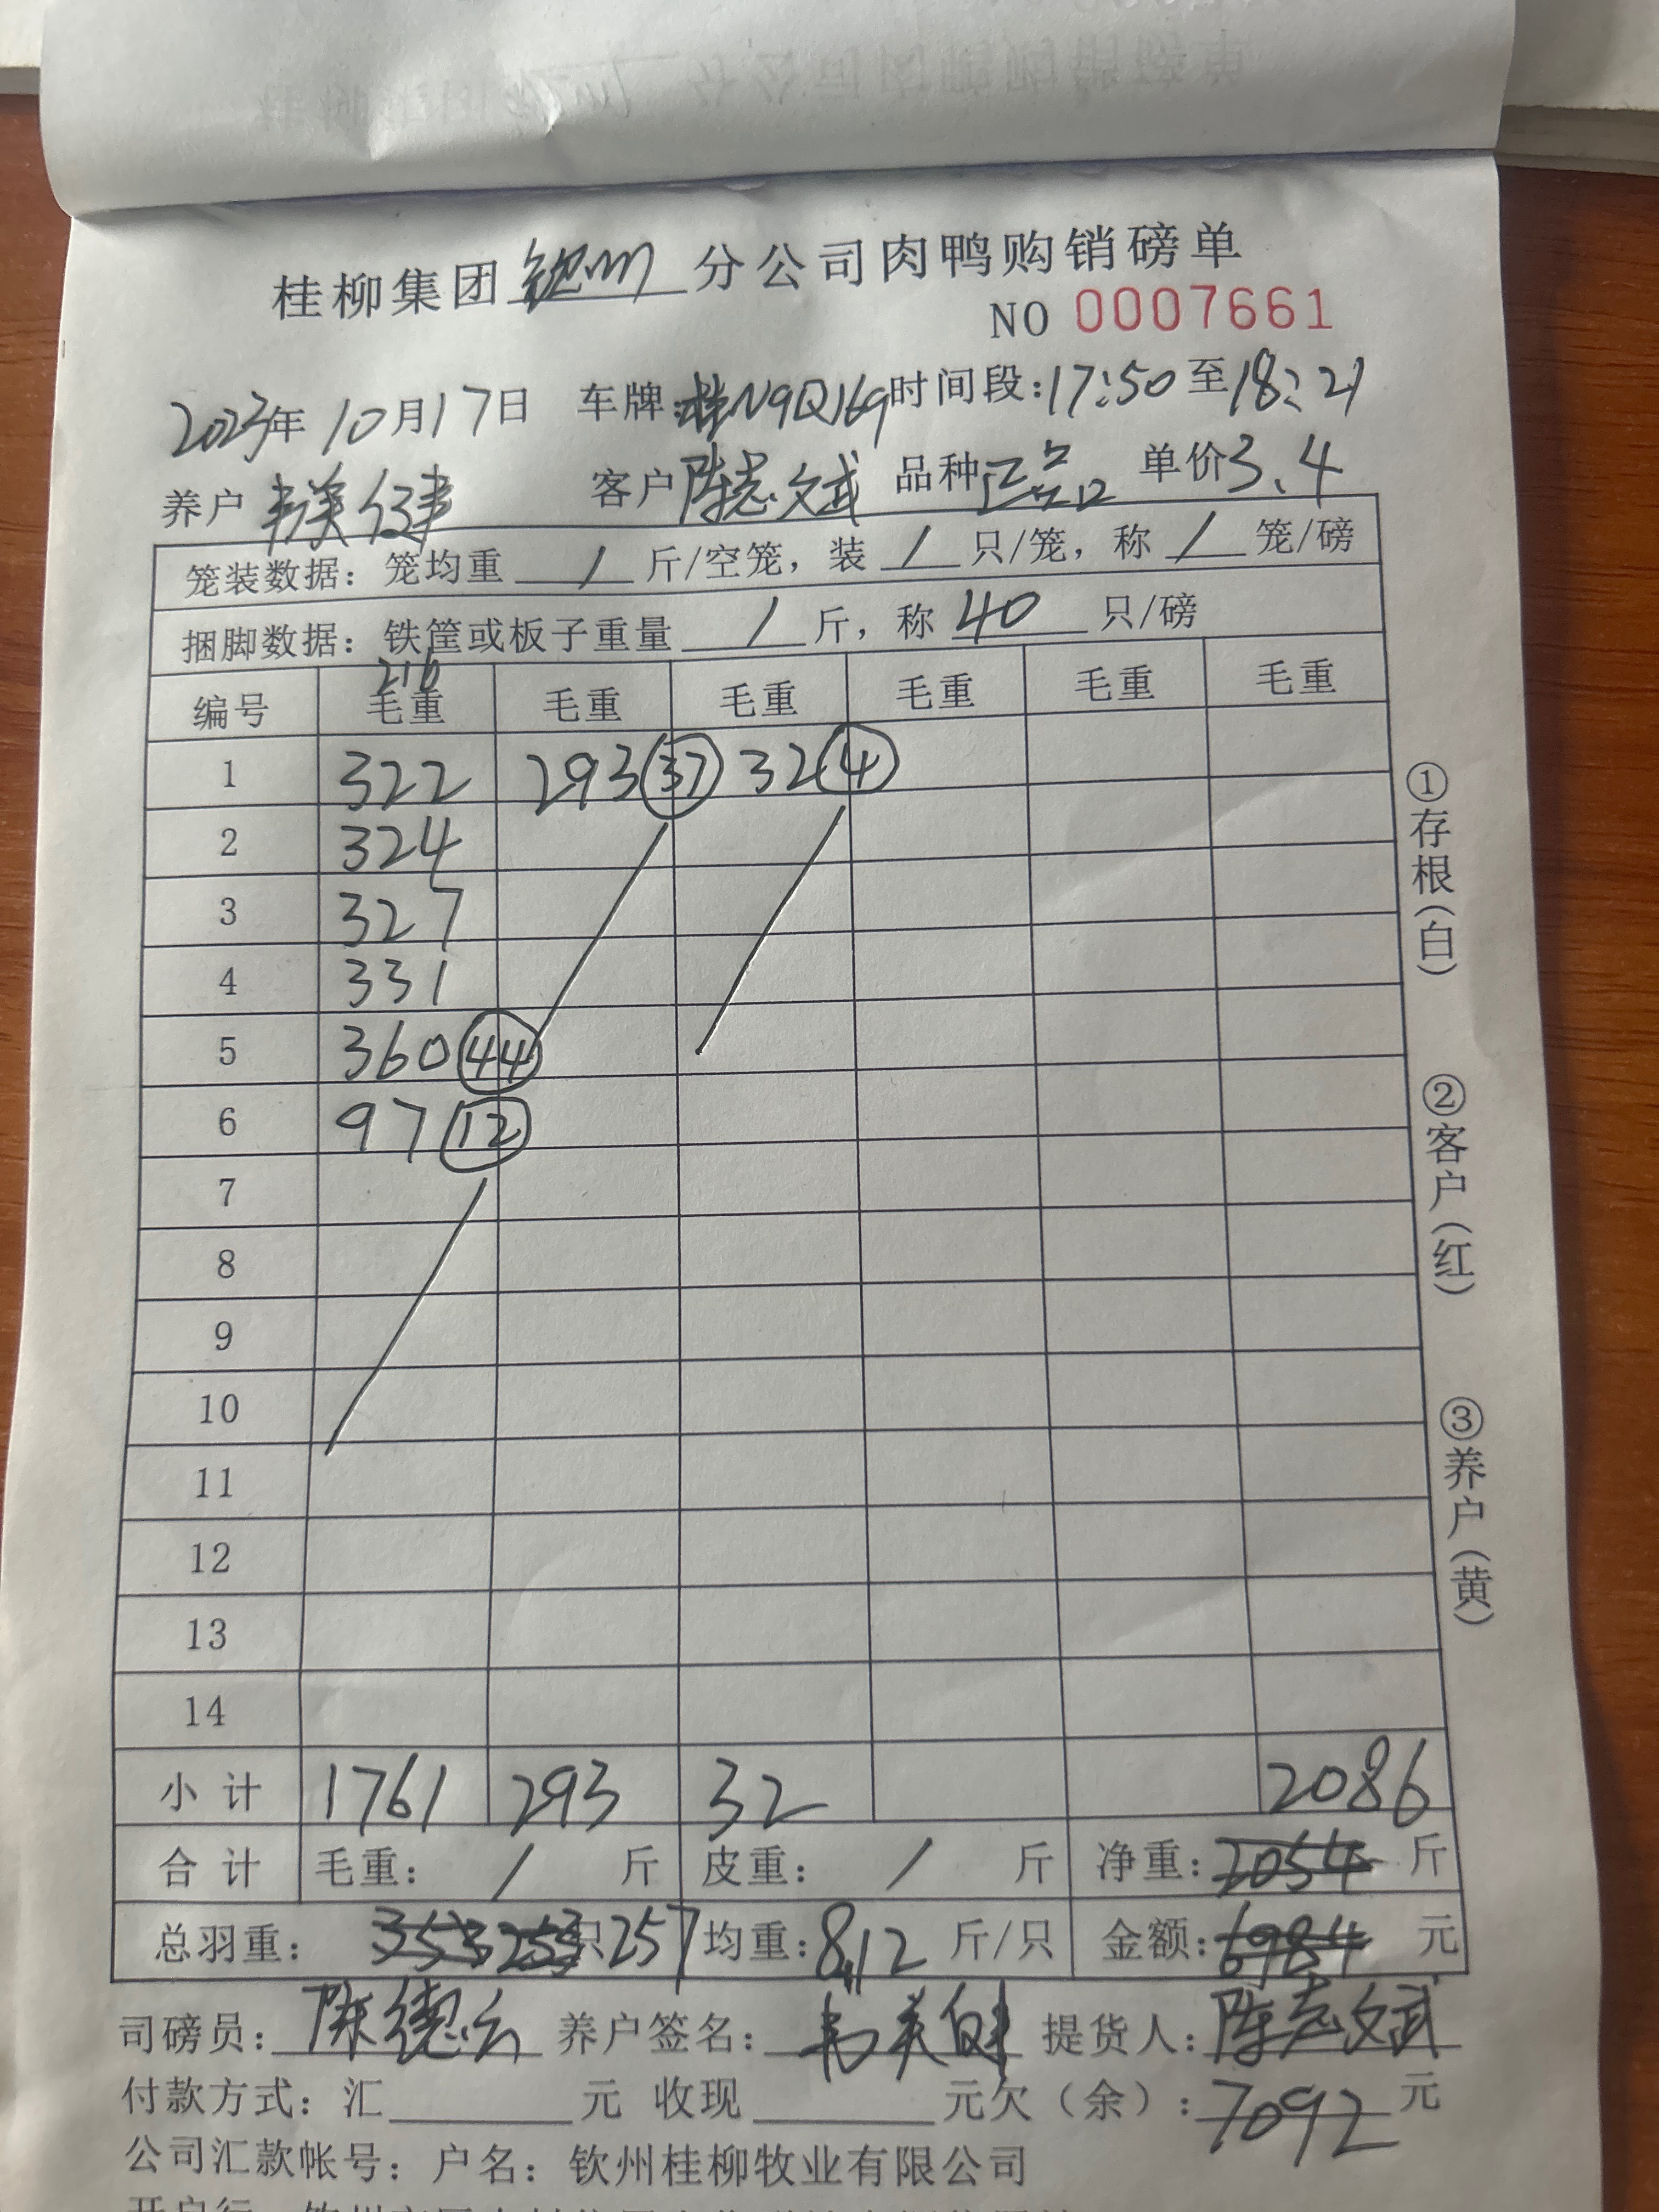 桂柳集团钦州分公司肉鸭购销磅单
NO 0007661
2023年10月17日 车牌:桂N9Q169 时间段:17:50至18:21
养户 韦美健 客户 陈志斌 品种 正品 单价3.4
笼装数据: 笼均重 / 斤/空笼, 装 / 只/笼, 称 / 笼/磅
捆脚数据: 铁筐或板子重量 / 斤, 称 40 只/磅
216
编号 毛重 毛重 毛重 毛重 毛重 毛重
1 322 293 37 32 4
2 324
3 327
4 331
5 360 44
6 97 12
7
8
9
10
11
12
13
14
小计 1761 293 32 2086
合计 毛重: / 斤 皮重: / 斤 净重: 2054 斤
总羽重: 353 253 只 257 均重: 8.12 斤/只 金额: 6984 元
司磅员: 陈德云 养户签名: 韦美健 提货人: 陈志斌
付款方式: 汇 元 收现 元欠(余): 7092 元
公司汇款帐号: 户名: 钦州桂柳牧业有限公司
①存根(白)
②客户(红)
③养户(黄)